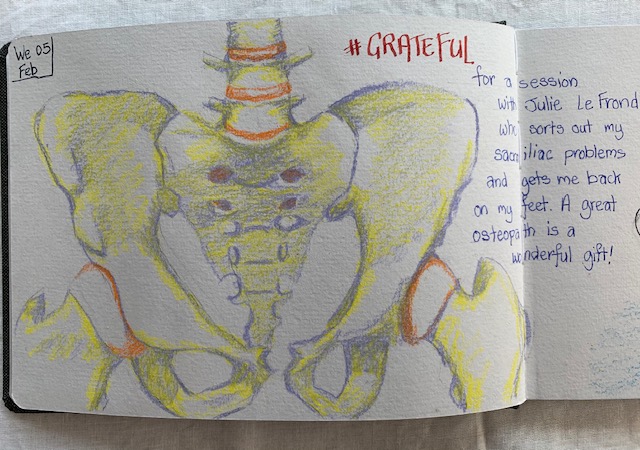 We 05
Feb
#GRATEFUL
for a session
with Julie Le Frond
who sorts out my
sacroiliac problems
and gets me back
on my feet. A great
osteopath is a
wonderful gift!